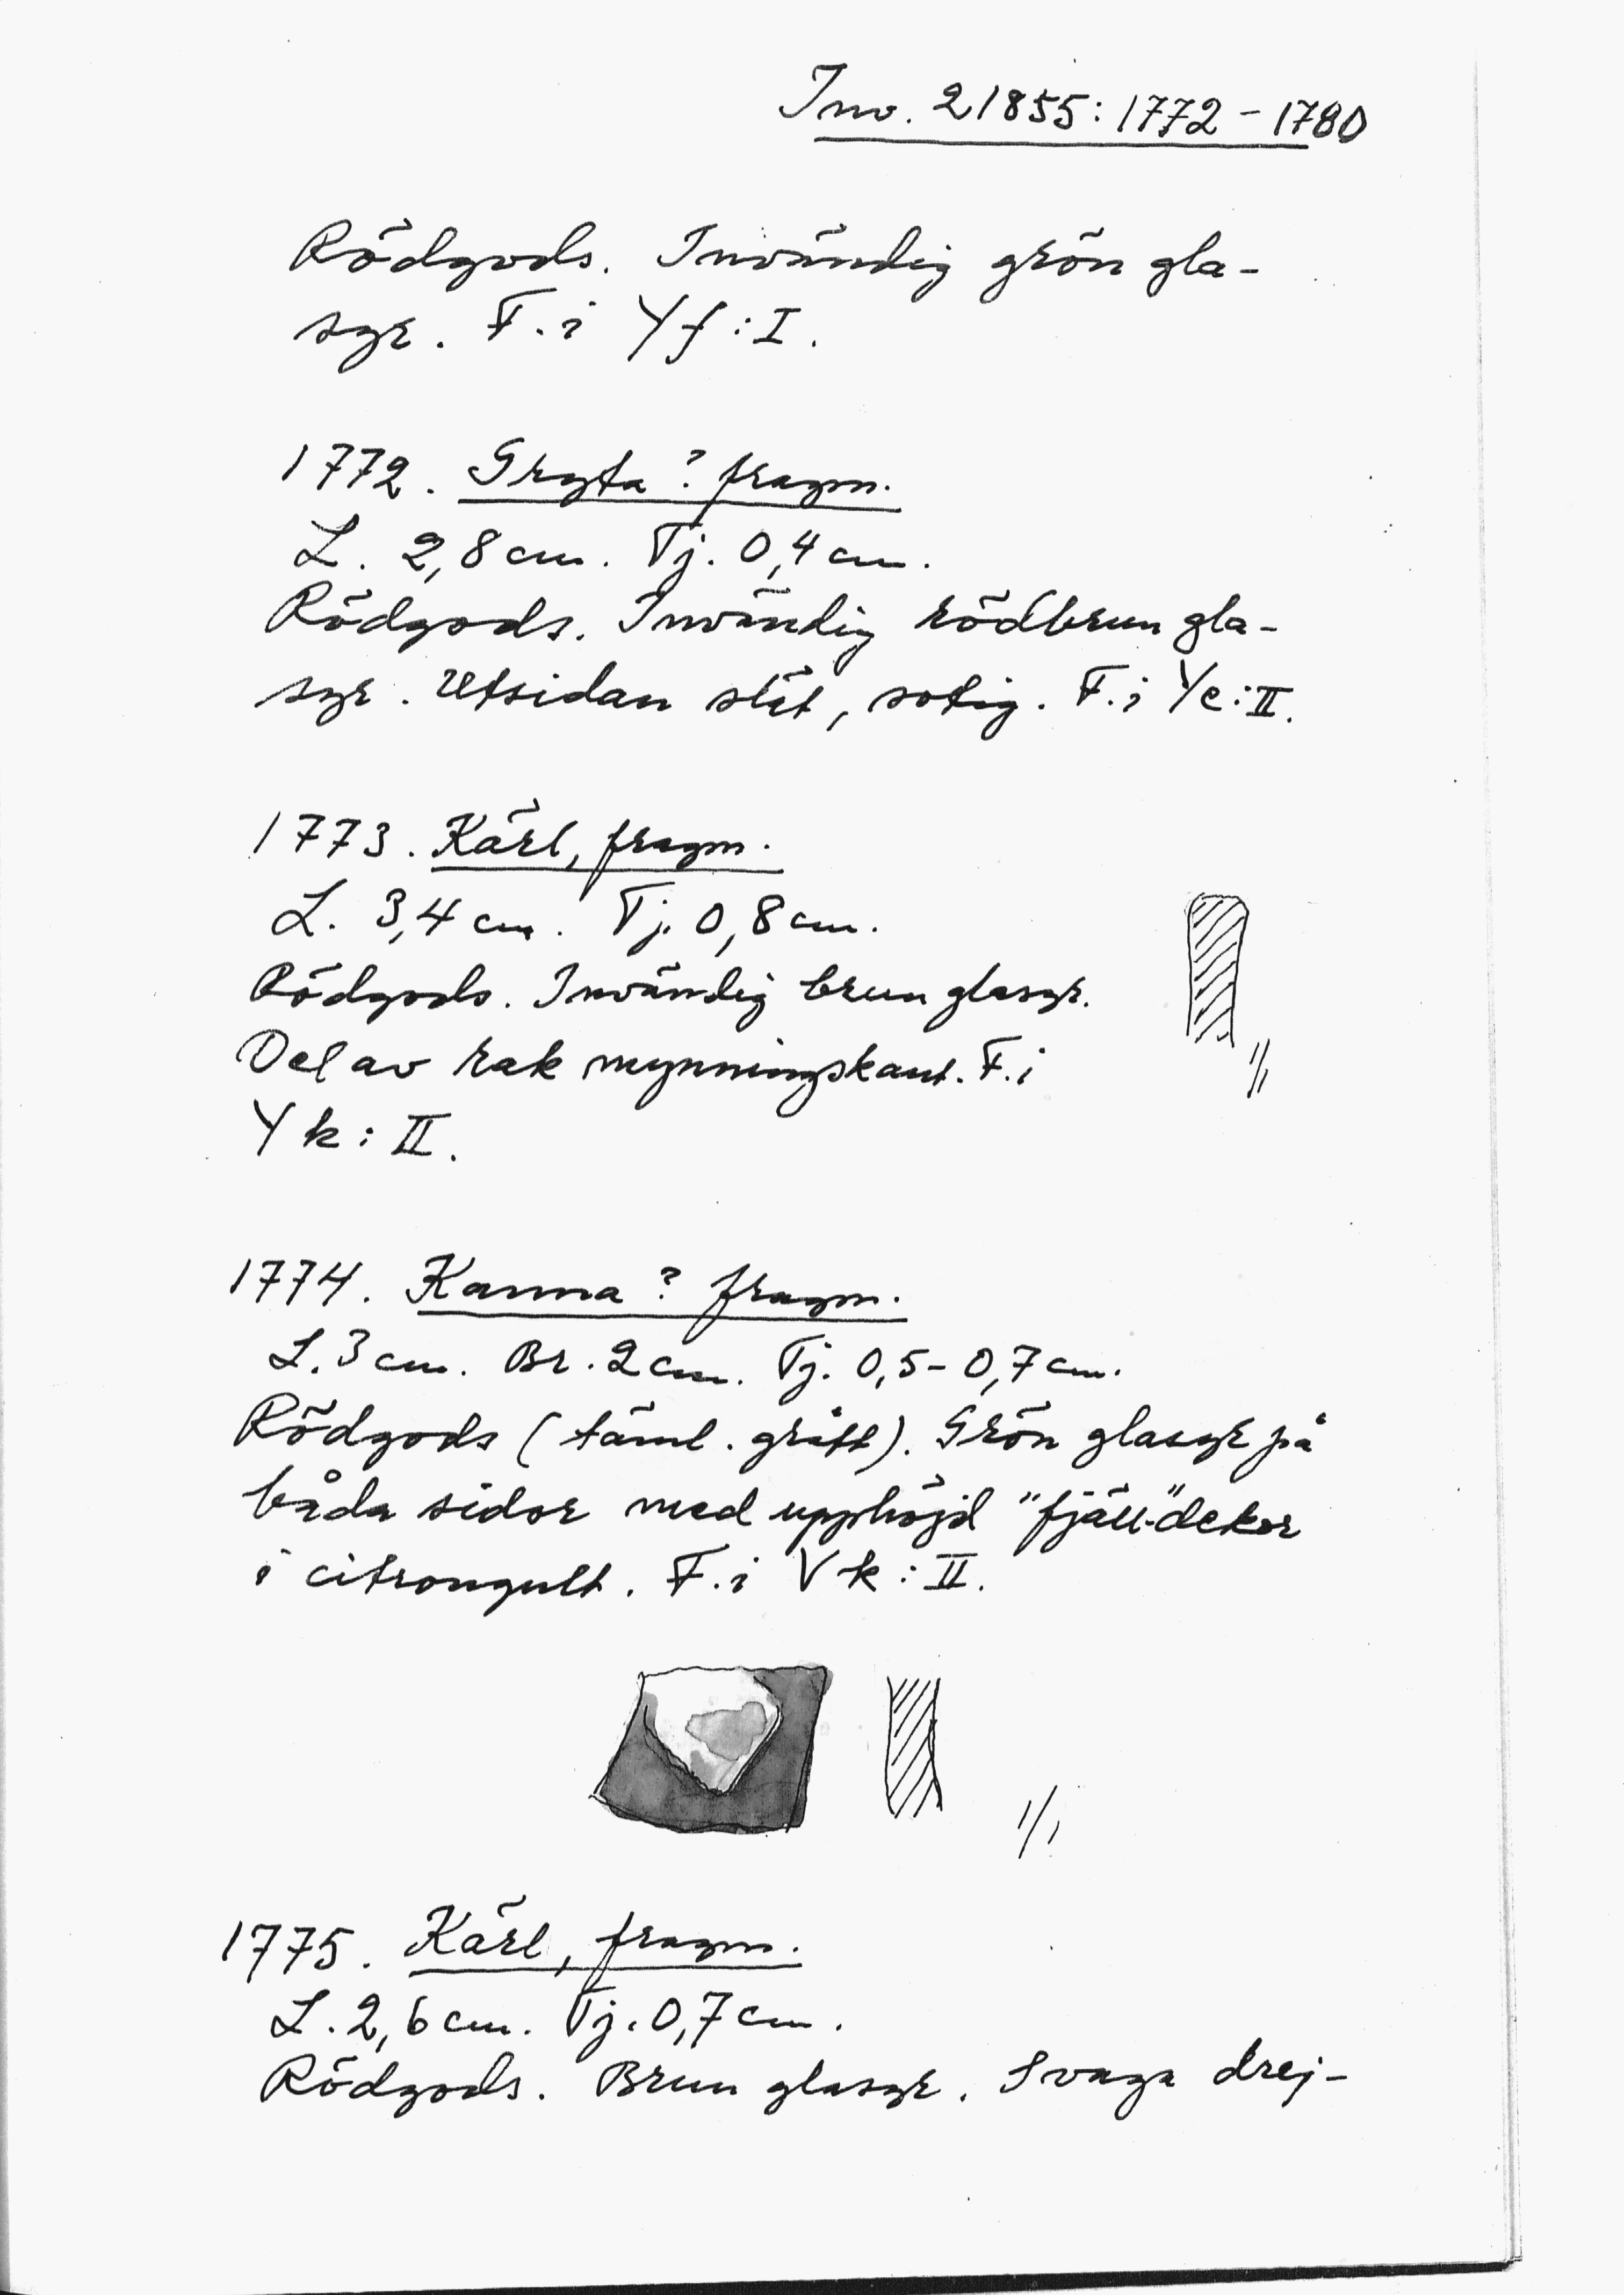 Inv. 21855: 1772 - 1780
Rödgods. Invändig grön gla-
syr. F. i Yf: I.
1772. Gryta? fragm.
L. 2,8 cm. Tj. 0,4 cm.
Rödgods. Invändig rödbrun gla-
syr. Utsidan slät, sotig. F. i Ye: II.
1773. Kärl, fragm.
L. 3,4 cm. Tj. 0,8 cm.
Rödgods. Invändig brun glasyr.
Del av rak mynningskant. F. i
Yk: II.
1/1
1774. Kanna? fragm.
L. 3 cm. Br. 2 cm. Tj. 0,5 - 0,7 cm.
Rödgods (täml. grått). Grön glasyr på
båda sidor med upphöjd "fjäll-"dekor
i citrongult. F. i Vk: II.
1/1
1775. Kärl, fragm.
L. 2,6 cm. Tj. 0,7 cm.
Rödgods. Brun glasyr. Svaga drej-